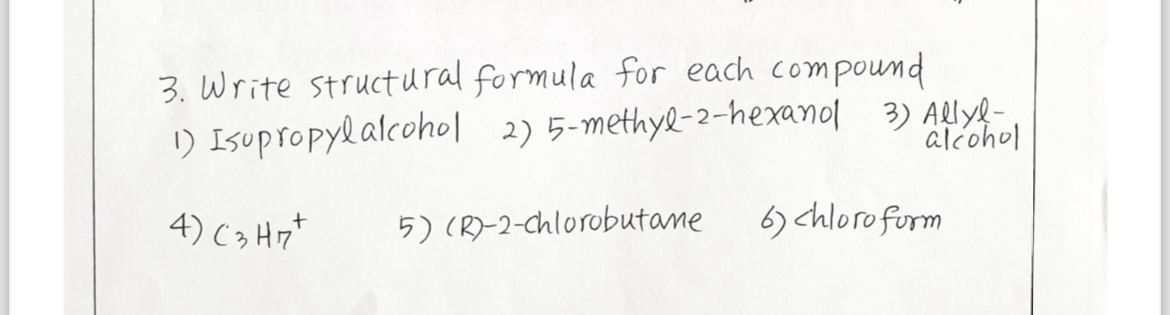 3. Write structural formula for each compound
1) Isopropylalcohol 2) 5-methyl-2-hexanol 3) Allyl-
alcohol
4) C3H7+ 5) (R)-2-chlorobutane 6) chloroform